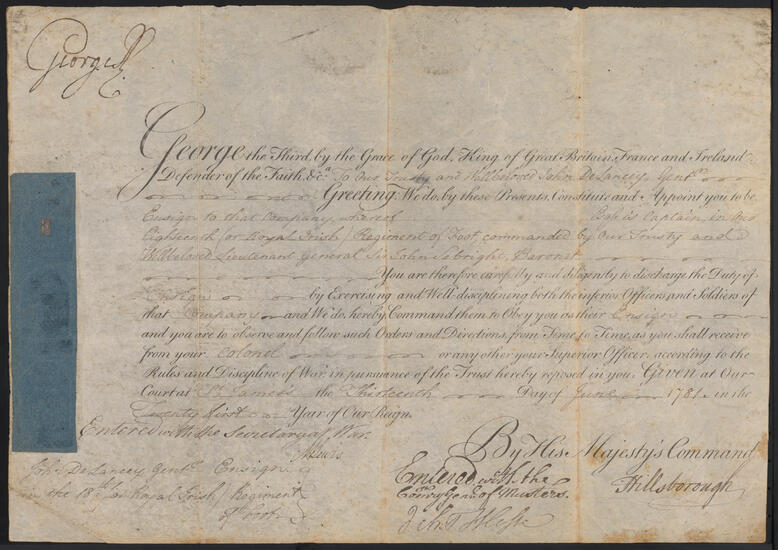 George R
George the Third, by the Grace of God, King of Great Britain, France and Ireland
Defender of the Faith, &ca. To Our Trusty and Wellbeloved John DeLancey, Gentn
Greeting. We do, by these Presents, Constitute and Appoint you to be
Ensign to that Company, whereof Esq is Captain, in Our
Eighteenth (or Royal Irish) Regiment of Foot, commanded by Our Trusty and
Wellbeloved Lieutenant General Sir John Sebright, Baronet
You are therefore carefully and diligently to discharge the Duty of
Ensign by Exercising and Well-disciplining both the inferior Officers and Soldiers of
that Company and We do hereby Command them to Obey you as their Ensign
and you are to observe and follow such Orders and Directions, from Time to Time, as you shall receive
from your Colonel or any other your Superior Officer, according to the
Rules and Discipline of War in pursuance of the Trust hereby reposed in you. Given at Our
Court at St. James's the Thirteenth Day of June 1781 in the
Twenty first Year of Our Reign.
Entered with the Secretary at War
By His Majesty's Command
Hillsborough
John DeLancey Gentn. Ensign
in the 18th or Royal Irish Regiment
of Foot
Entered with the
Comry Genl of Musters.